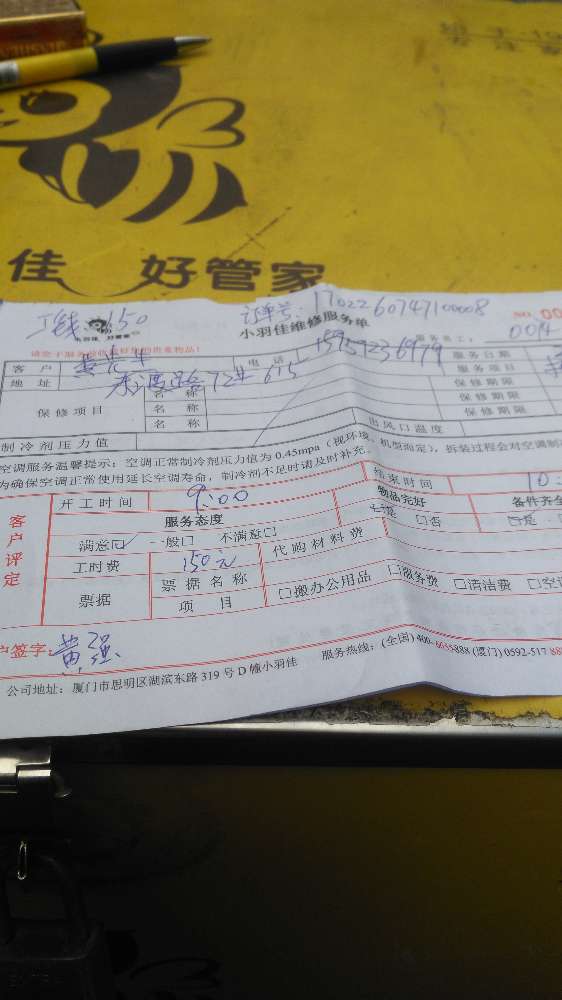 佳 好管家
工钱:150
订单号:170226074710008
小羽佳维修服务单
NO.00
请您于服务前收藏好您的贵重物品!
客 户 电 话 15959236979 服务日期
地 址 72# 615 服务项目
保修项目 名 称 保修期限
名 称 保修期限
名 称 保修期限
制冷剂压力值 出风口温度
空调服务温馨提示:空调正常制冷剂压力值为0.45mpa(视环境、机型而定),拆装过程会对空调制
为确保空调正常使用延长空调寿命,制冷剂不足时请及时补充。
客户评定
开工时间 9:00 结束时间 10
服务态度 物品完好 备件齐全
满意☑ 一般□ 不满意□ ☑是 □否 ☑是
工时费 150元 代购材料费
票据 票据名称 □搬办公用品 □服务费 □清洁费 □空
项 目
户签字: 黄强
公司地址:厦门市思明区湖滨东路319号D幢小羽佳 服务热线:(全国)400-6035888 (厦门)0592-517 88